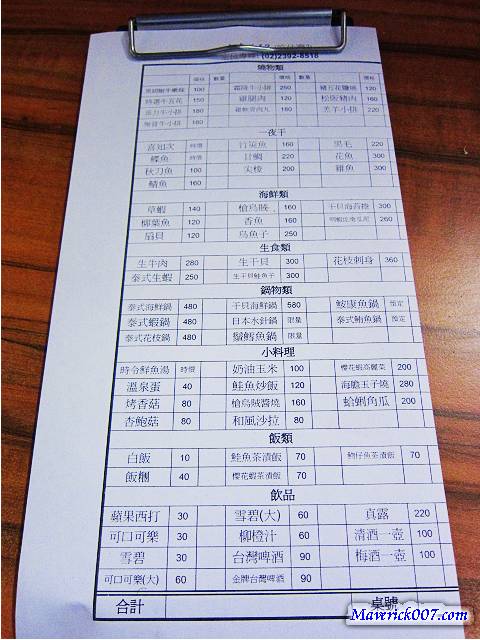 (02)2392-8518
燒物類
價格 數量 價格 數量 價格
100 霜降牛小排 250 豬五花鹽燒 120
特選牛五花 150 雞腿肉 120 松阪豬肉 160
180 160 羔羊小排 220
無骨牛小排 180
一夜干
喜知次 時價 竹筴魚 160 黑毛 220
鰈魚 時價 甘鯛 220 花魚 300
秋刀魚 100 尖梭 200 雞魚 300
鯖魚 160
海鮮類
草蝦 140 槍烏賊 160 干貝海苔捲 300
柳葉魚 120 香魚 160 260
扇貝 120 烏魚子 250
生食類
生牛肉 280 生干貝 300 花枝刺身 360
泰式生蝦 250 生干貝鮭魚子 300
鍋物類
泰式海鮮鍋 480 干貝海鮮鍋 580 鮟康魚鍋 預定
泰式蝦鍋 480 日本水針鍋 限量 泰式鮪魚鍋 預定
泰式花枝鍋 480 鱈魚鍋 限量
小料理
時令鮮魚湯 時價 奶油玉米 100 櫻花蝦高麗菜 200
溫泉蛋 40 鮭魚炒飯 120 海膽玉子燒 280
烤香菇 80 槍烏賊醬燒 160 蛤蜊角瓜 200
杏鮑菇 80 和風沙拉 80
飯類
白飯 10 鮭魚茶漬飯 70 魩仔魚茶漬飯 70
飯糰 40 櫻花蝦茶漬飯 70
飲品
蘋果西打 30 雪碧(大) 60 真露 220
可口可樂 30 柳橙汁 60 清酒一壺 100
雪碧 30 台灣啤酒 90 梅酒一壺 100
可口可樂(大) 60 金牌台灣啤酒 90
合計 桌號
Maverick007.com